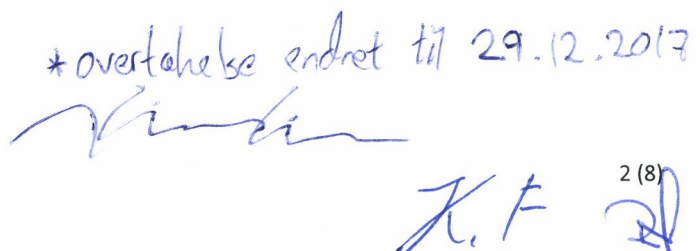 * overtakelse endret til 29.12.2017
2 (8)
K. F